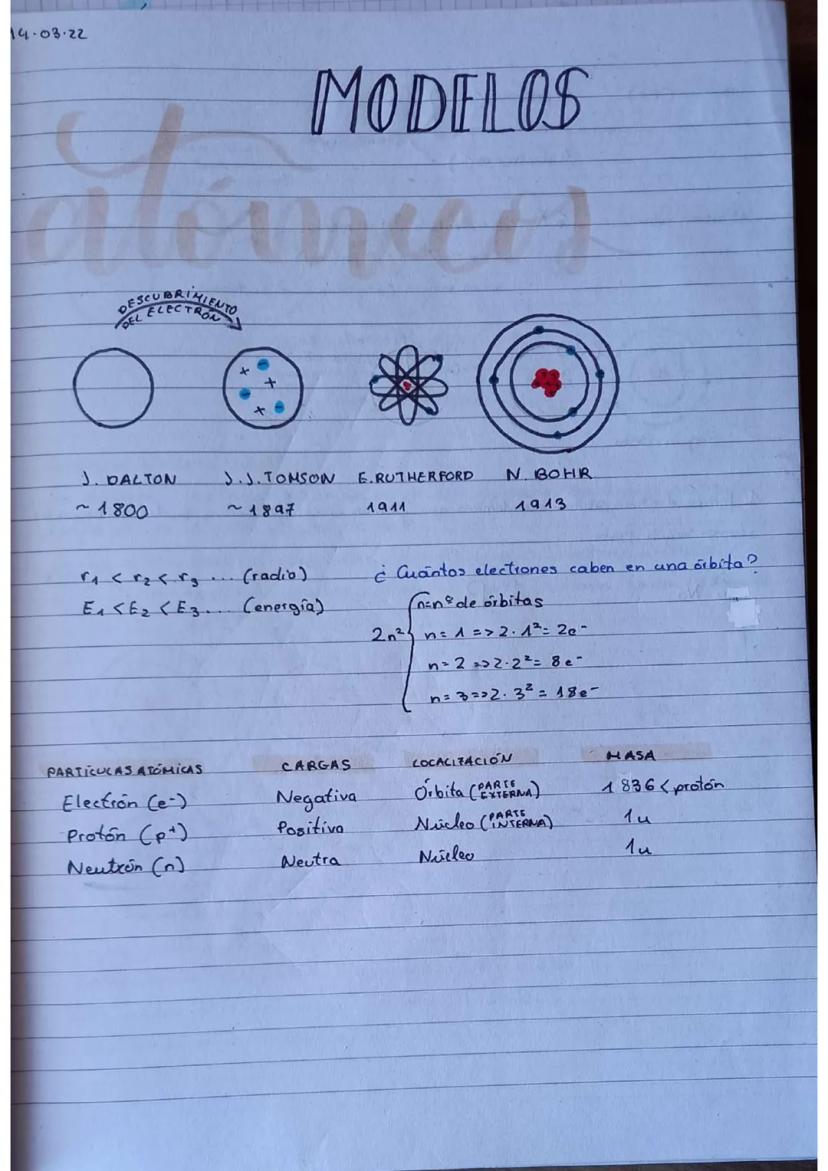 14·03·22
MODELOS
atómicos
DESCUBRIMIENTO
DEL ELECTRÓN
+ - +
- + -
J. DALTON J.J. TOMSON E. RUTHERFORD N. BOHR
~ 1800 ~ 1897 1911 1913
r₁ < r₂ < r₃ ... (radio) ¿Cuántos electrones caben en una órbita?
E₁ < E₂ < E₃ ... (energía) n=nº de órbitas
2n² { n= 1 => 2·1²= 2e⁻
n= 2 => 2·2²= 8e⁻
n= 3 => 2·3² = 18e⁻
PARTÍCULAS ATÓMICAS CARGAS LOCALIZACIÓN MASA
Electrón (e⁻) Negativa Órbita (PARTE EXTERNA) 1836 < protón
Protón (p⁺) Positiva Núcleo (PARTE INTERNA) 1u
Neutrón (n) Neutra Núcleo 1u